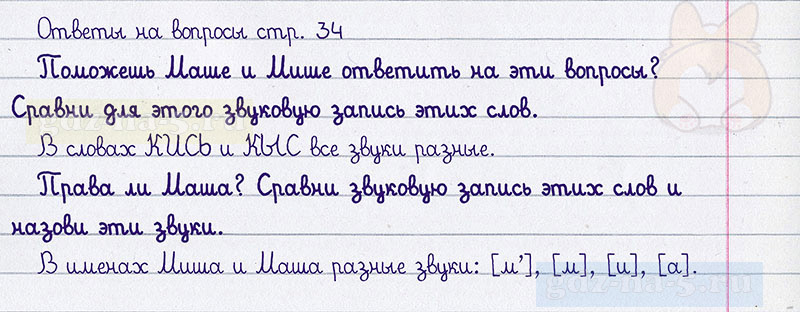 Ответы на вопросы стр. 34
Поможешь Маше и Мише ответить на эти вопросы?
Сравни для этого звуковую запись этих слов.
gdz-na-5.ru
В словах КИСЬ и КЫС все звуки разные.
Права ли Маша? Сравни звуковую запись этих слов и
назови эти звуки.
В именах Миша и Маша разные звуки: [м’], [м], [и], [а].
gdz-na-5.ru